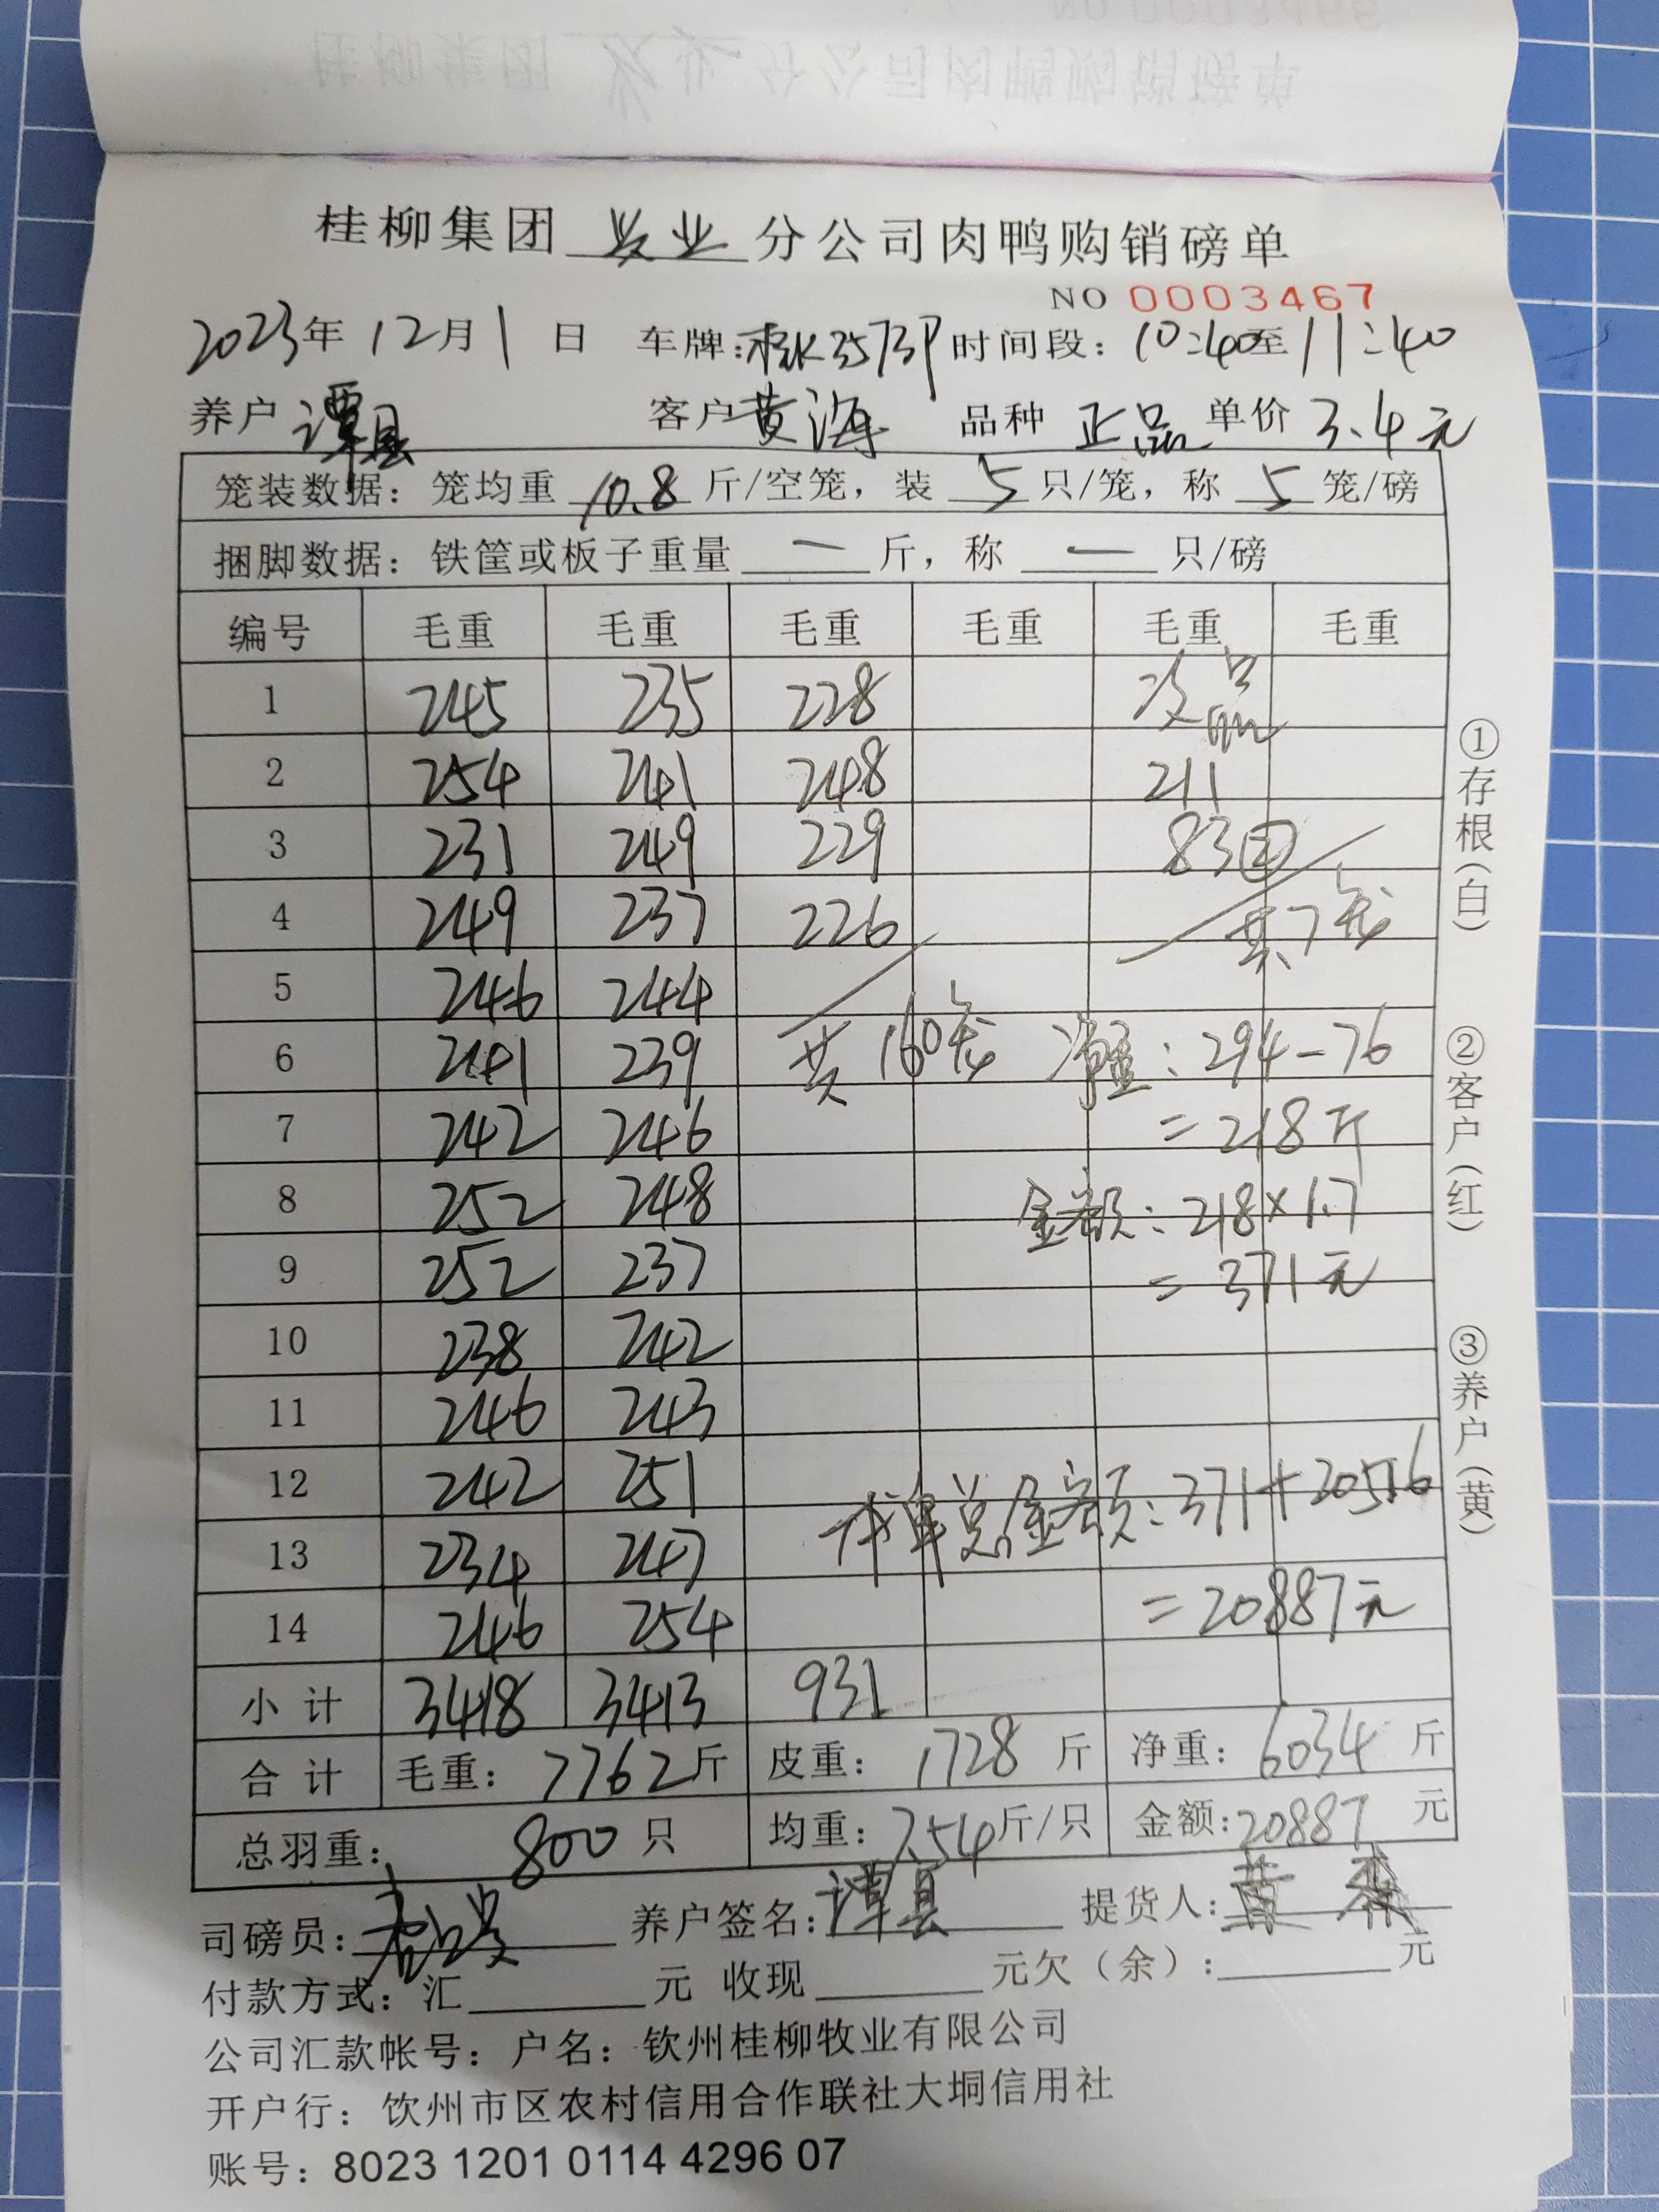 桂柳集团 兴业 分公司肉鸭购销磅单
NO 0003467
2023年 12月 1 日 车牌:桂K3573P 时间段:10:40至11:40
养户 谭县 客户 黄海 品种 正品 单价 3.4元
笼装数据：笼均重 10.8 斤/空笼，装 5 只/笼，称 5 笼/磅
捆脚数据：铁筐或板子重量 — 斤，称 — 只/磅
编号 毛重 毛重 毛重 毛重 毛重 毛重
1 245 235 228 次品
2 254 241 248 211
3 231 249 229 83②
4 249 237 226 共7笼
5 246 244
6 241 239 共160笼 净重：294-76
7 242 246 =218斤
8 252 248 金额：218×1.7
9 252 237 =371元
10 238 242
11 246 243
12 242 251 本单总金额：371+20516
13 234 247
14 246 254 =20887元
小计 3418 3413 931
合计 毛重：7762斤 皮重：1728 斤 净重：6034 斤
总羽重：800只 均重：7.54斤/只 金额:20887 元
司磅员: 养户签名:谭县 提货人:黄森
付款方式：汇 元 收现 元欠（余）: 元
公司汇款帐号：户名：钦州桂柳牧业有限公司
开户行：饮州市区农村信用合作联社大垌信用社
账号：8023 1201 0114 4296 07
①存根（白）
②客户（红）
③养户（黄）